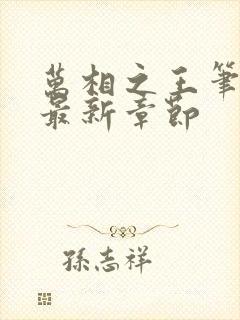 萬相之王筆
最新章節
孫志祥